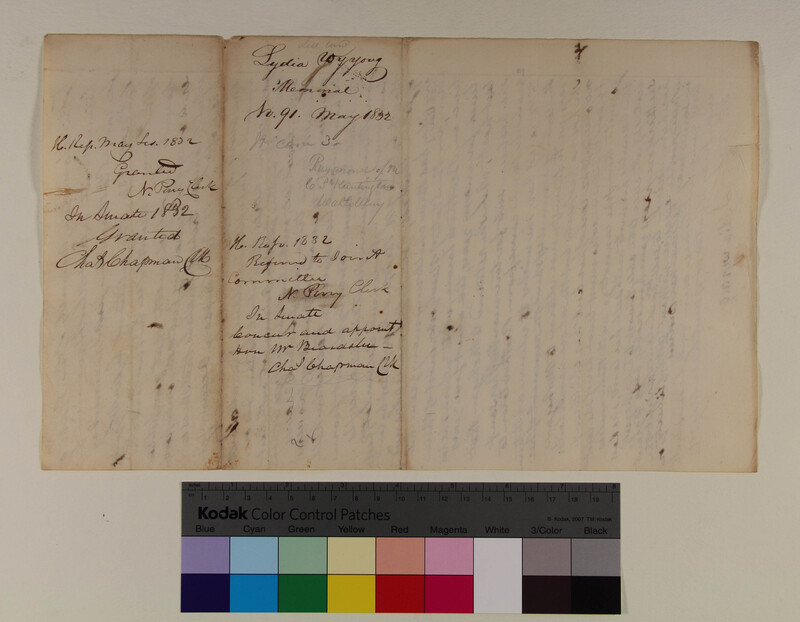 H. Rep. May Ses. 1832
Granted
N. Perry Clerk
In Senate 1832
Granted
Chas Chapman Clk
Lydia Wyyoug
Memorial
No. 91. May 1832
3
H. Rep. 1832
Referred to Joint
Committee
N. Perry Clerk
In Senate
Concur and appoint
Hon Mr
Chas Chapman Clk
Kodak Color Control Patches
© Kodak, 2007 TM: Kodak
Blue Cyan Green Yellow Red Magenta White 3/Color Black